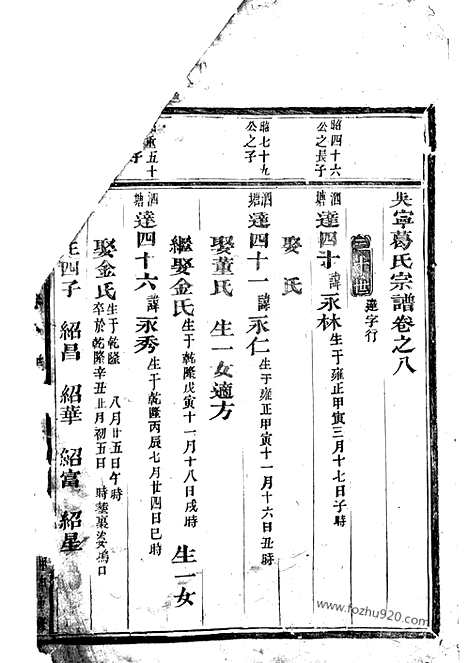 吳寧葛氏宗譜卷之八
三十世 達字行
昭四十六公之長子
泗塘達四十 諱永林 生于雍正甲寅三月十七日子時
娶 氏
昭七十九公之子
泗塘達四十一 諱永仁 生于雍正甲寅十一月十六日丑時
娶董氏 生一女適方
繼娶金氏 生于乾隆戊寅十一月十八日戌時 生一女
五十 子
泗塘達四十六 諱永秀 生于乾隆丙辰七月廿四日巳時
娶金氏 生于乾隆 八月廿五日午時 卒於乾隆辛丑 月初五日 時葬
四子 紹昌 紹華 紹富 紹星
www.fozhu920.com